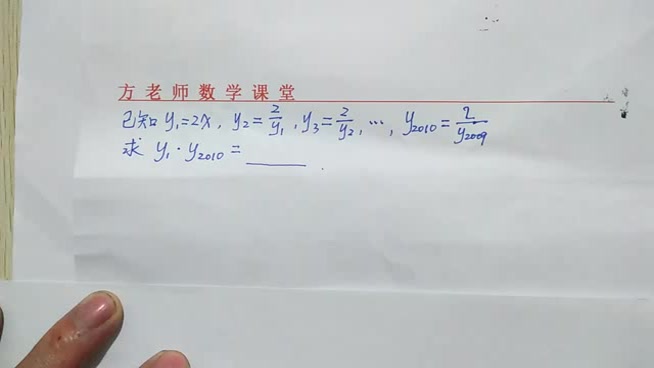 方老师数学课堂
已知 y₁=2x, y₂=2/y₁, y₃=2/y₂, …, y₂₀₁₀=2/y₂₀₀₉
求 y₁·y₂₀₁₀=____.